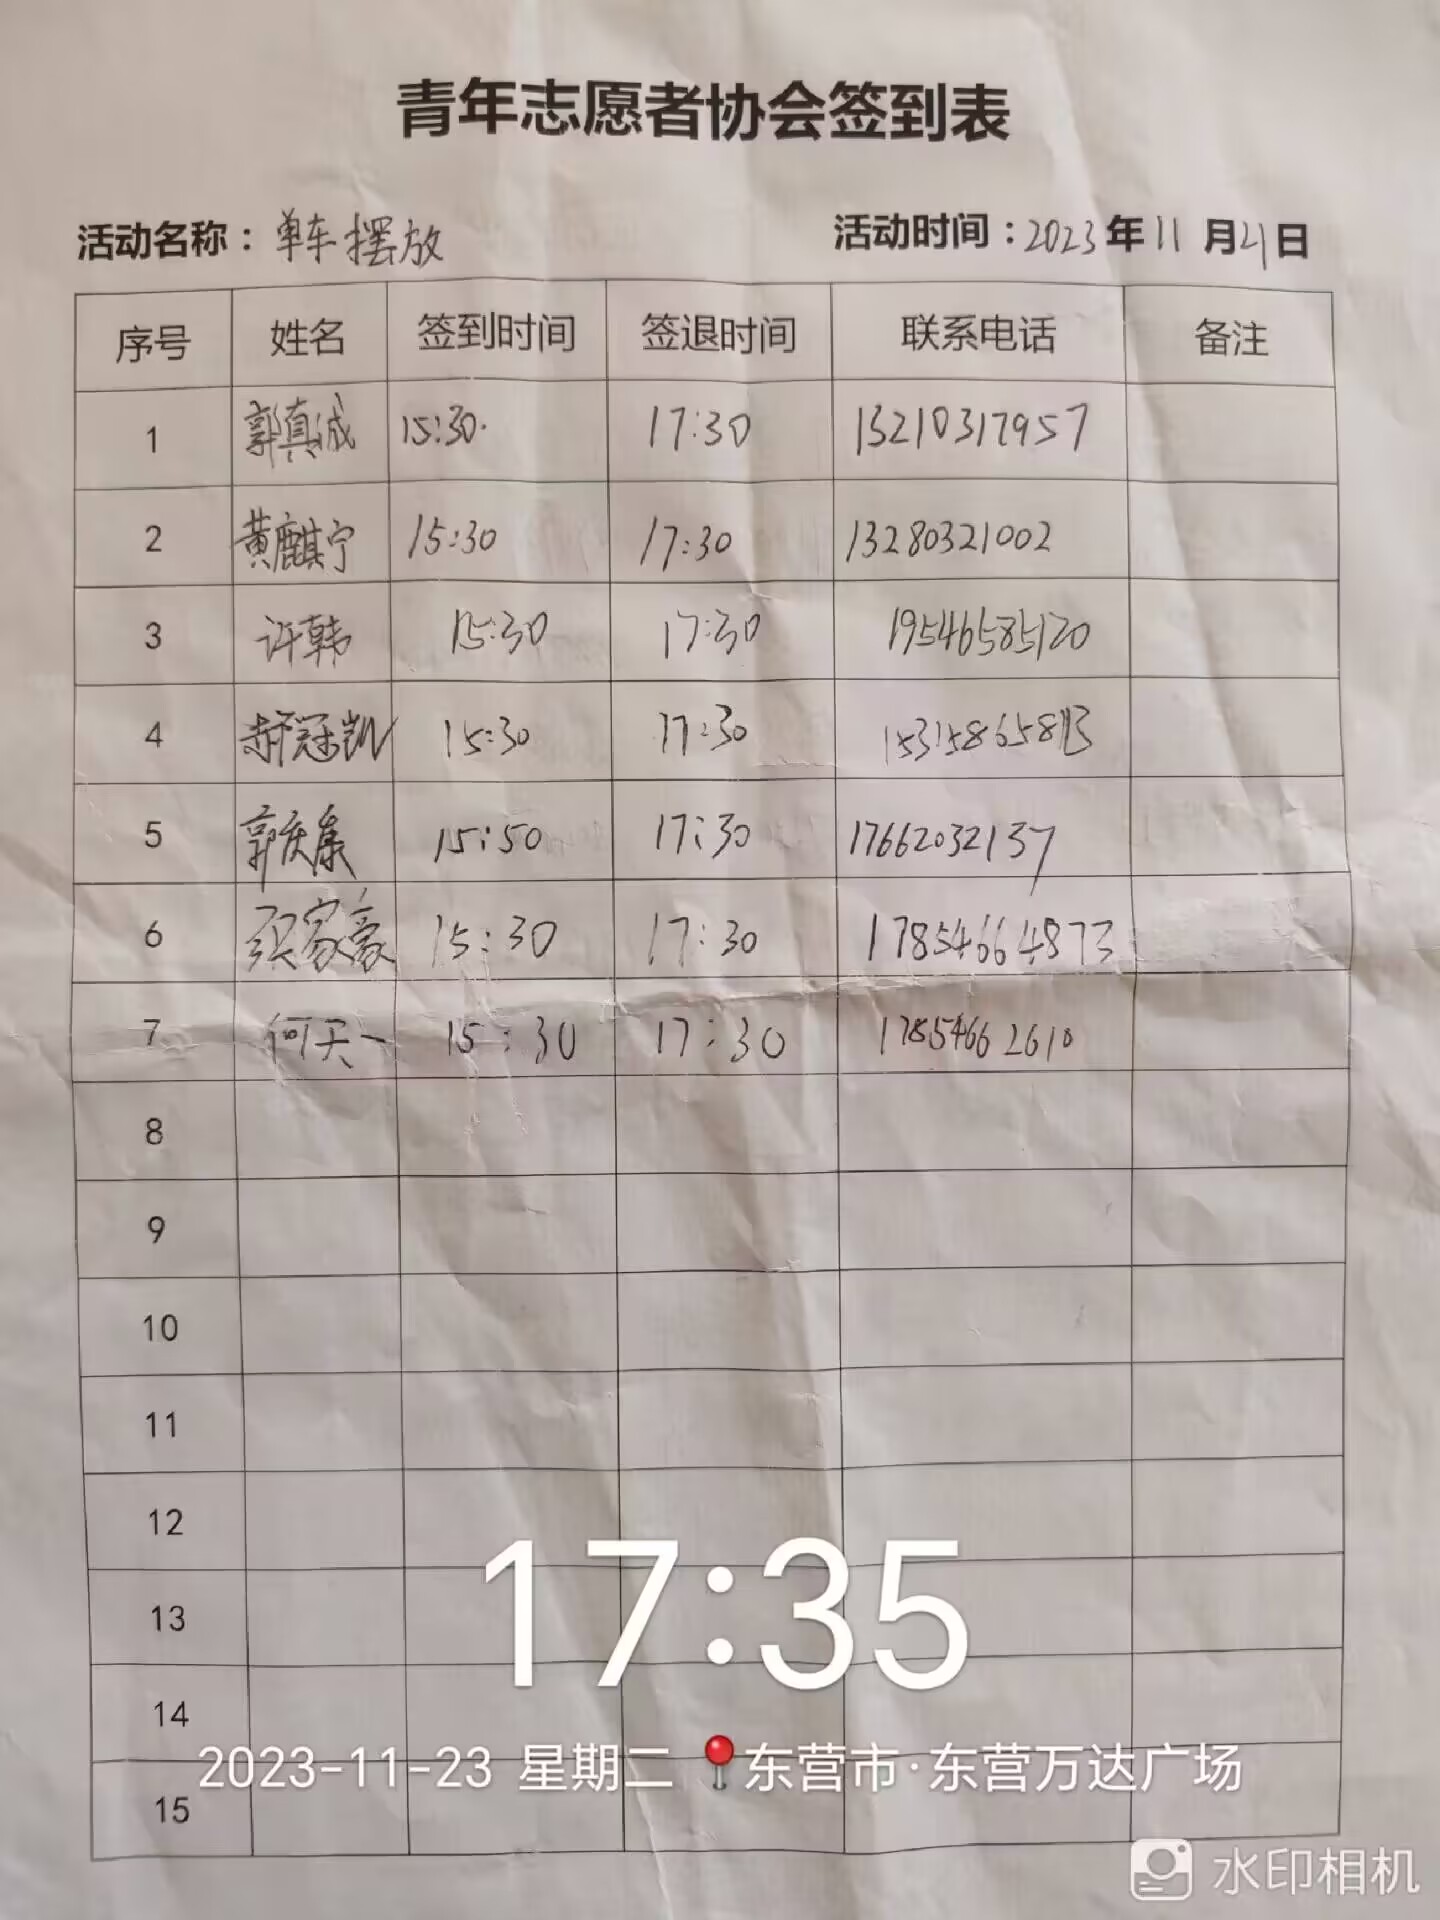 青年志愿者协会签到表
活动名称：单车摆放 活动时间：2023年11月21日
序号 姓名 签到时间 签退时间 联系电话 备注
1 郭真诚 15:30 17:30 13210317957
2 黄麒宁 15:30 17:30 13280321002
3 许韩 15:30 17:30 19546585120
4 郝冠凯 15:30 17:30
5 郭庆康 15:50 17:30 17662032137
6 家豪 15:30 17:30 17854664873
7 何天一 15:30 17:30 17854662610
8
9
10
11
12
13
14
15
17:35
2023-11-23 星期二 东营市·东营万达广场
水印相机